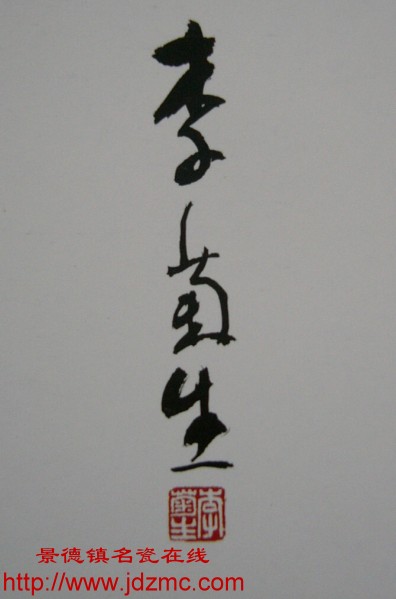 李菊生
李菊生
景德镇名瓷在线
http://www.jdzmc.com